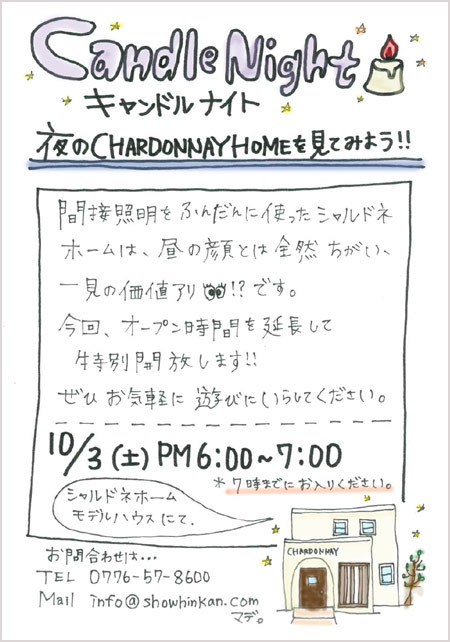 Candle Night
キャンドル ナイト
夜のCHARDONNAY HOMEを見てみよう!!
間接照明をふんだんに使ったシャルドネ
ホームは、昼の顔とは全然ちがい、
一見の価値アリ!?です。
今回、オープン時間を延長して
特別開放します!!
ぜひお気軽に遊びにいらしてください。
10/3(土)PM6:00~7:00
*7時までにお入りください。
シャルドネホーム
モデルハウスにて.
CHARDONNAY
お問合わせは…
TEL 0776-57-8600
Mail info@showhinkan.com
マデ。